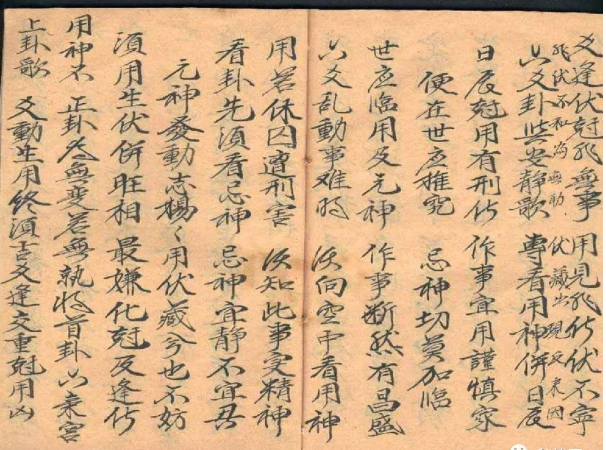 爻逢伏尅飛無事 用見飛伤伏不寧
飛伏不和為無助 伏藏出現定來因
六爻卦 安静歌 專看用神併日辰
日辰尅用有刑伤 作事宜用謹慎
便在世应推究 忌神切莫加臨
世应臨用及元神 作事断然有昌盛
六爻乱動事难 须向空中看用神
用若休囚遭刑害 须知此事 精神
看卦先须看忌神 忌神宜静不宜
元神發動志揚々 用伏藏兮也不妨
须用生伏併旺相 最嫌化尅反逢伤
用神不 正卦 無變若無執將首卦六 宫
上卦歌 爻動生用終须吉爻逢交重尅用凶